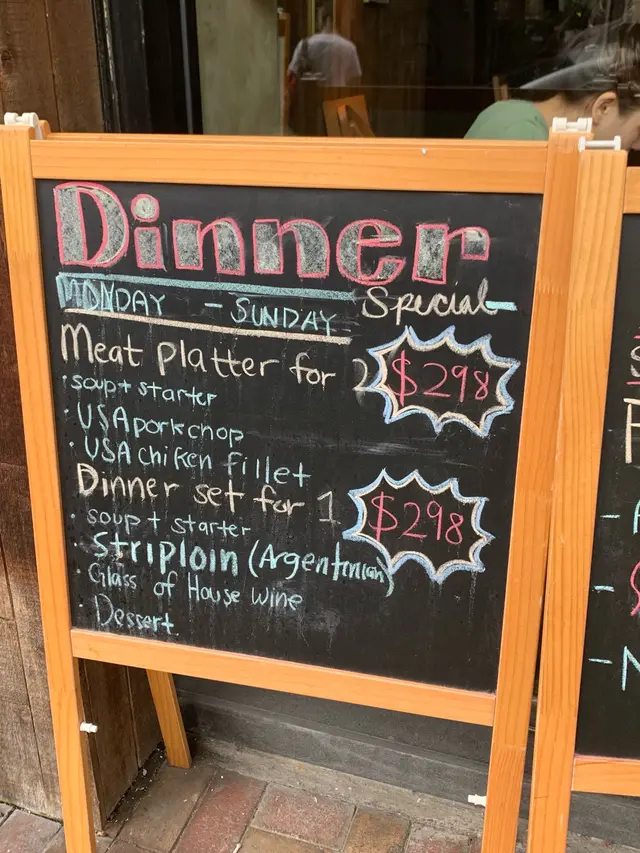 Dinner
MONDAY - SUNDAY Special
Meat Platter for 2 $298
· soup + starter
· USA pork chop
· USA chiken fillet
Dinner set for 1 $298
· soup + starter
· Striploin (Argentinian)
· Glass of House wine
· Dessert